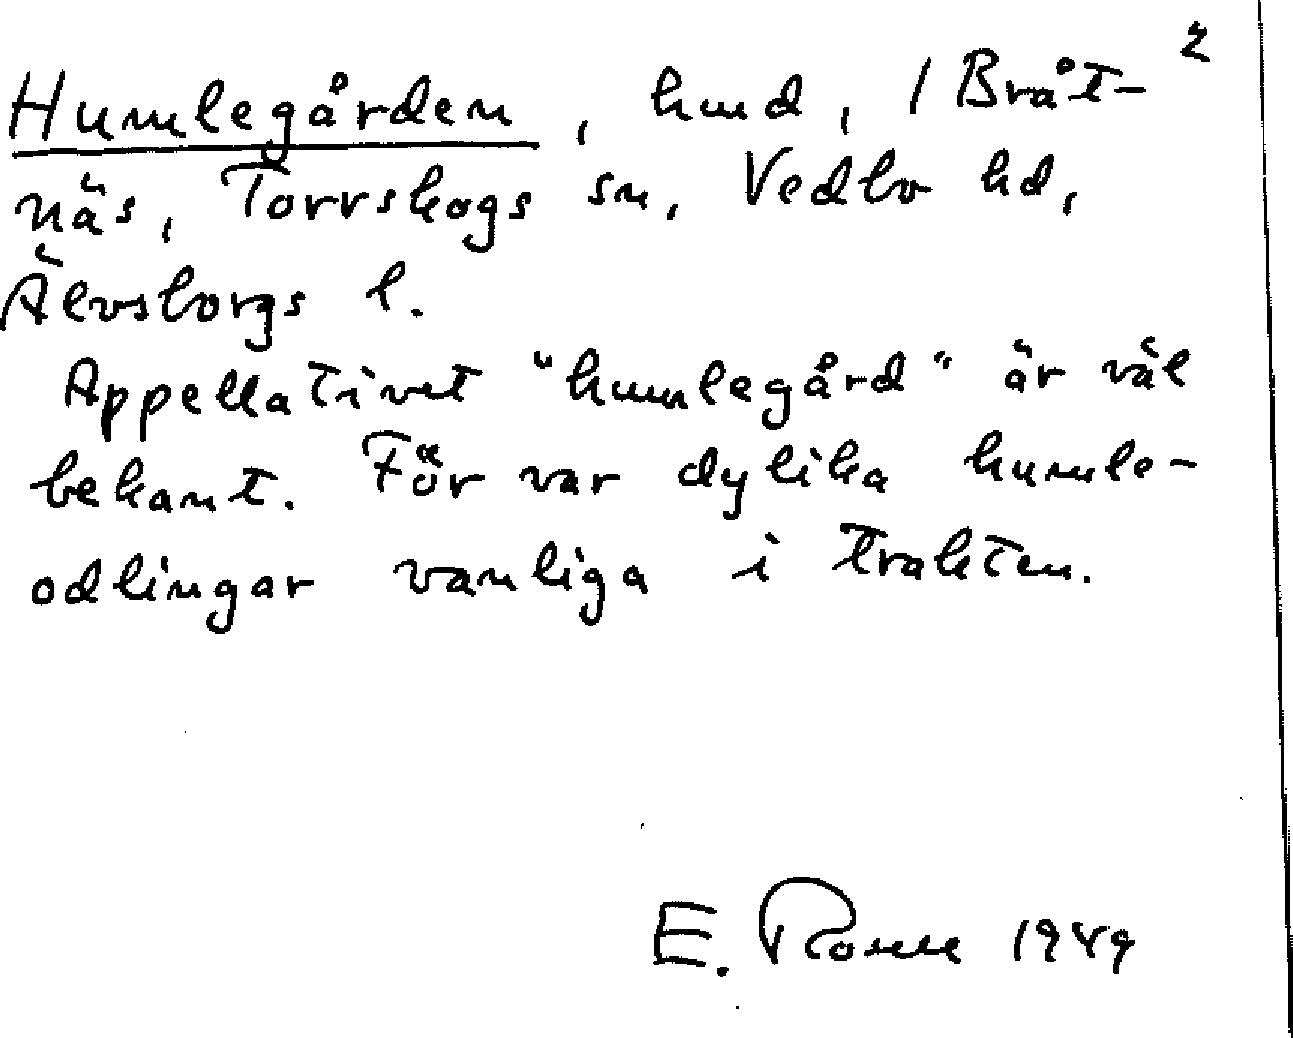 2
Humlegården, hmd, 1 Bråt-
näs, Torrskogs sn, Vedbo hd,
Älvsborgs l.
Appellativet "humlegård" är väl
bekant. Förr var dylika humle-
odlingar vanliga i trakten.
E. 1949